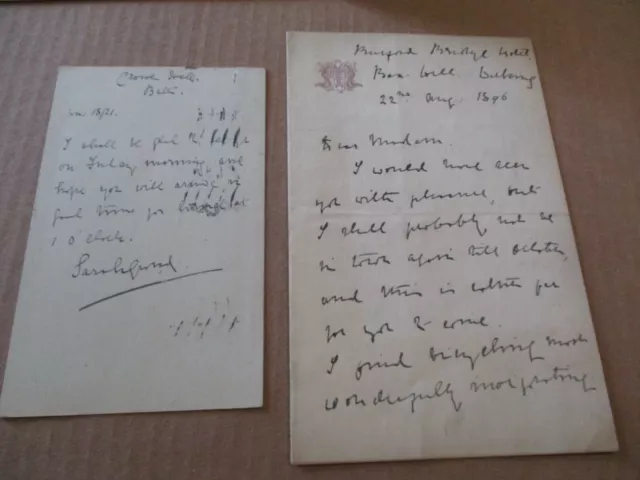 Crowe Hall.
Bath.
Jan. 18/21.
I shall be glad to
on Friday morning, and
hope you will arrive in
good time for luncheon at
1 o'clock.
Sarah Grand.
Burford Bridge Hotel.
Box Hill. Dorking
22nd Aug. 1896
Dear Madam.
I would have seen
you with pleasure, but
I shall probably not be
in town again till October,
and this is rather far
for you to come.
I find bicycling most
wonderfully invigorating